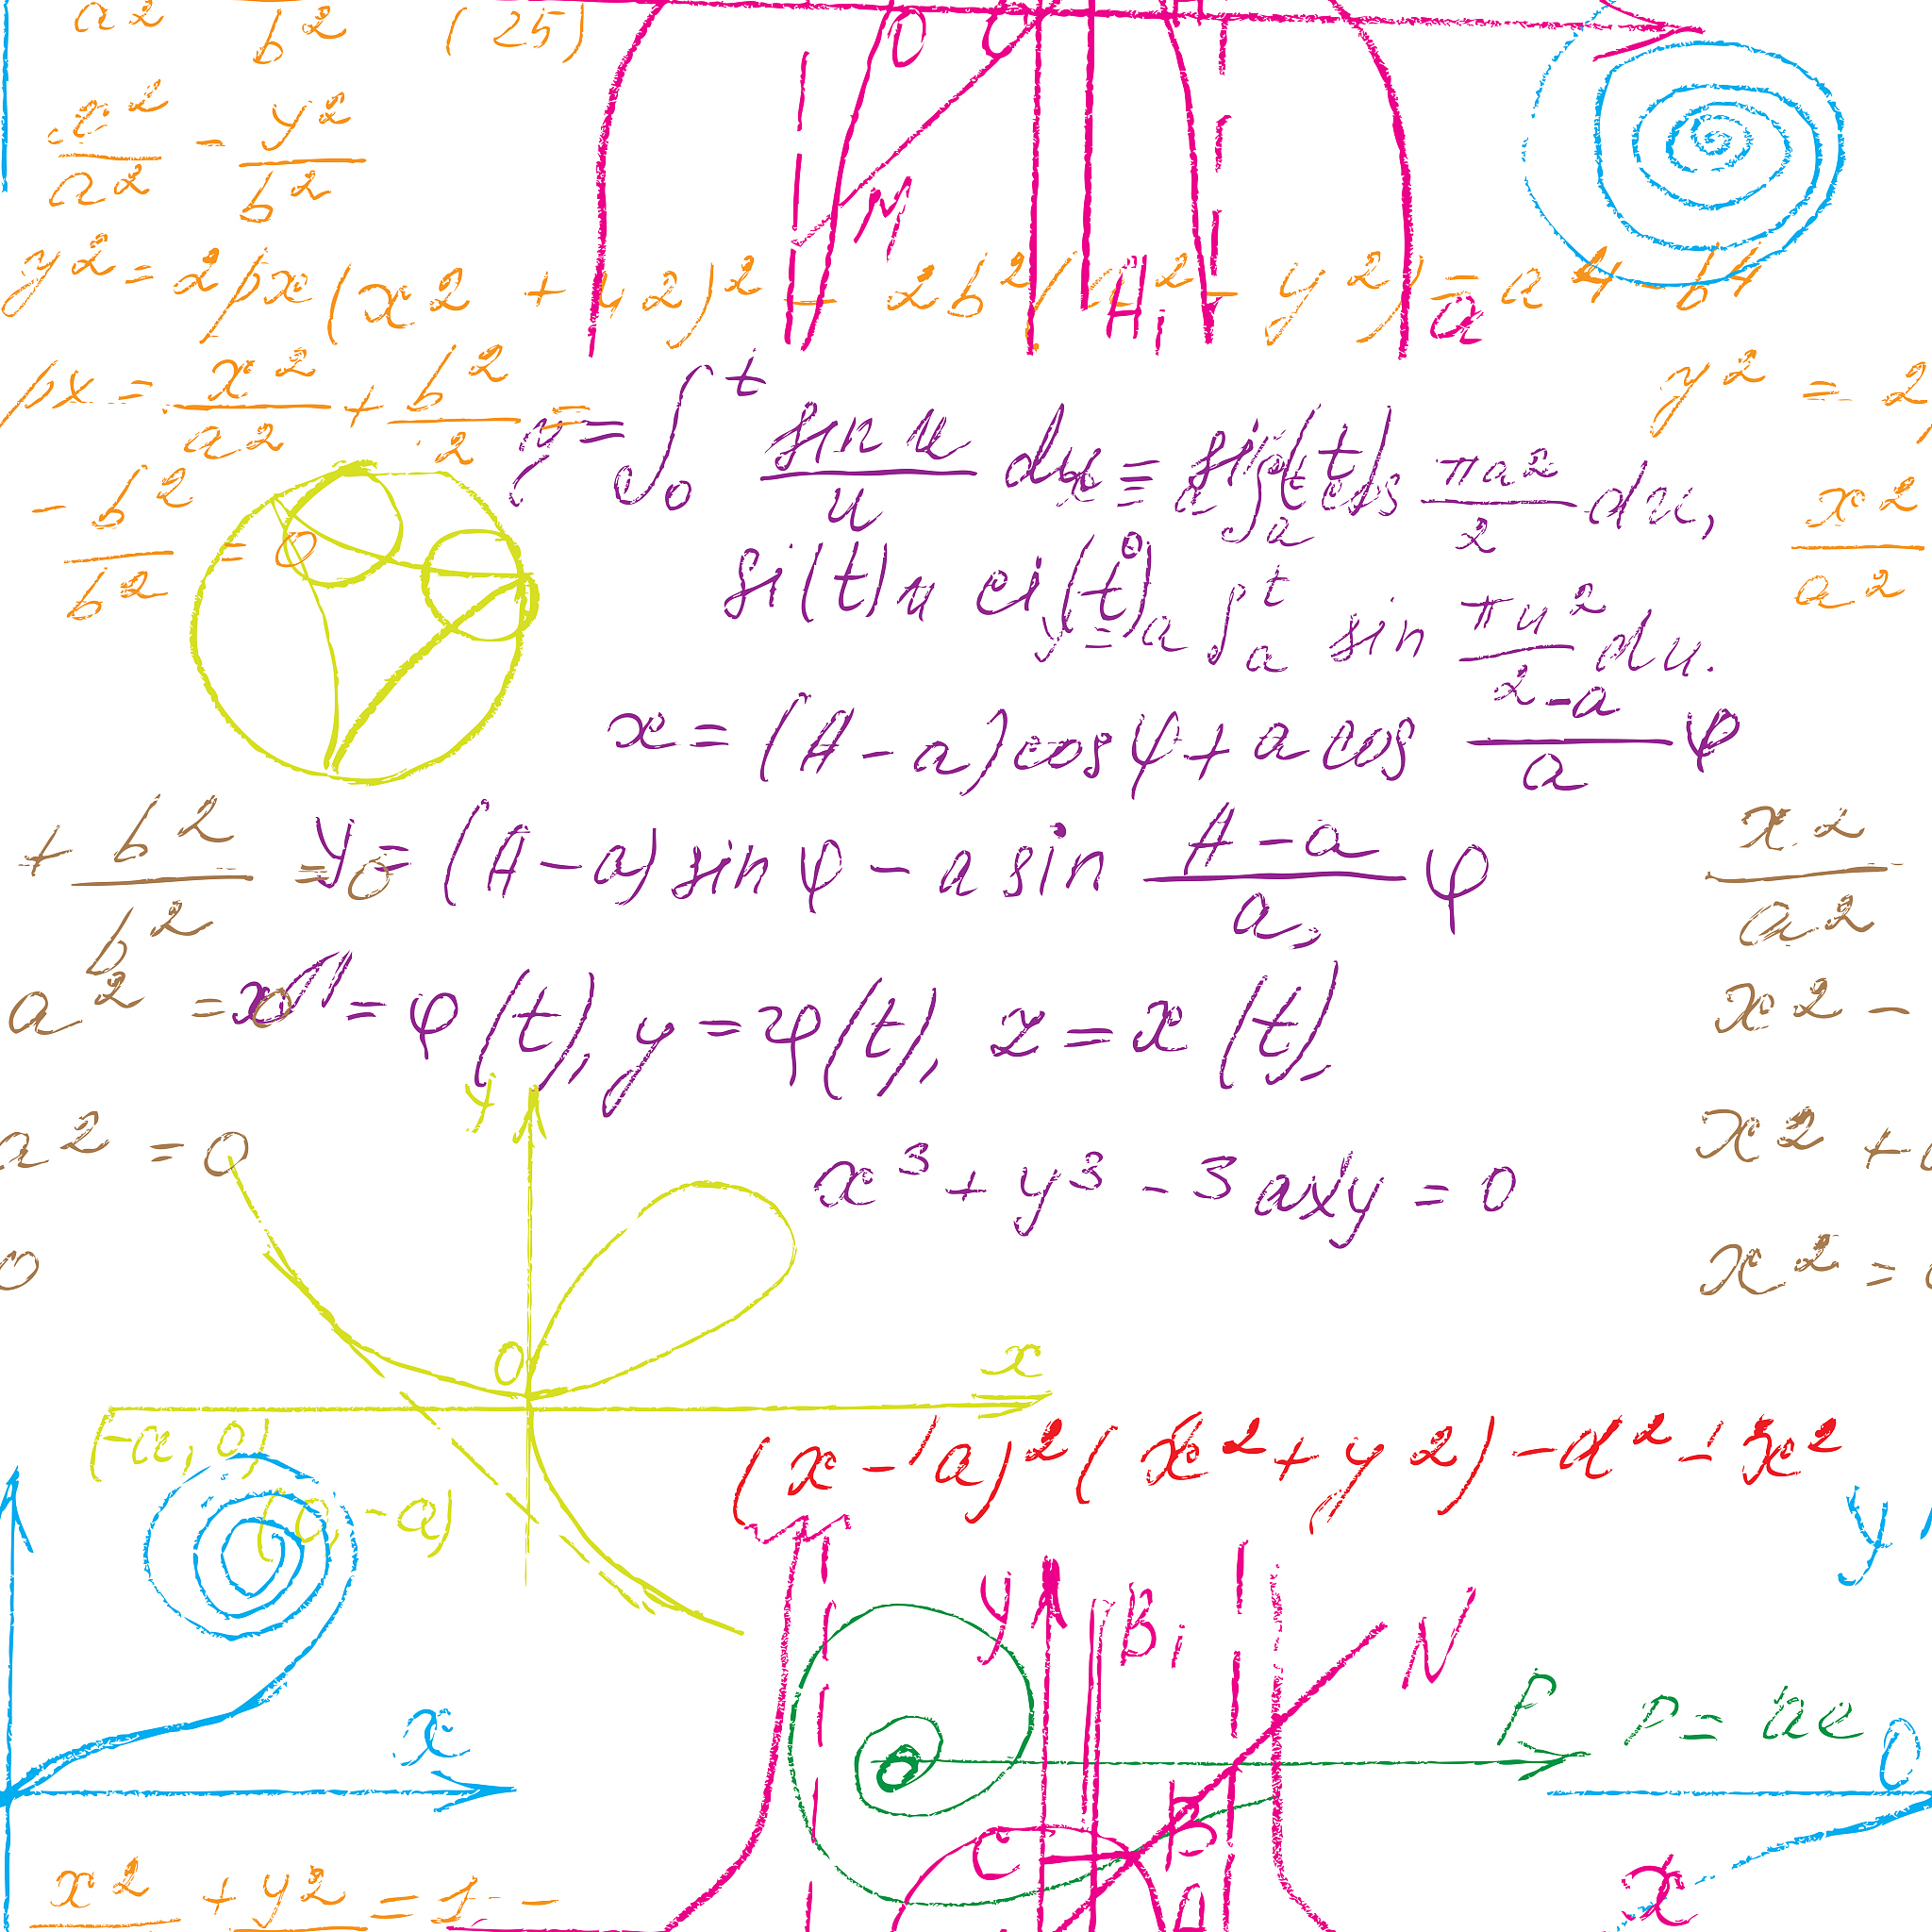 a² b² (25)
x²/a² - y²/b²
y² = 2px (x2 + y2)² - 2b² y²) = a⁴ - b⁴
D
M
A₁ a
px = x²/a² + b²/2 =
y² = 2
- b²/b² = 0
y = ∫₀ᵗ sin u/u du = si(t) cos πa²/2 du,
x²/a²
si(t) u ci(t)
y = a ∫ₐᵗ sin πu²/2 du.
x = (A - a) cos φ + a cos 2-a/a φ
+ b²/b² = 0
y = (A - a) sin φ - a sin A-a/a, φ
x2/a2
a² = 0
x = φ(t), y = φ(t), z = x(t),
x2 -
a² = 0
y
x³ + y³ - 3axy = 0
x² +
0
x² =
0 x
(-a, 0)
(0, -a)
(x - a)² (x² + y2) - x² - x²
y
y B₁ N
P P = ae
x
0
0
C B
A
x
x² + y2 = 1 -